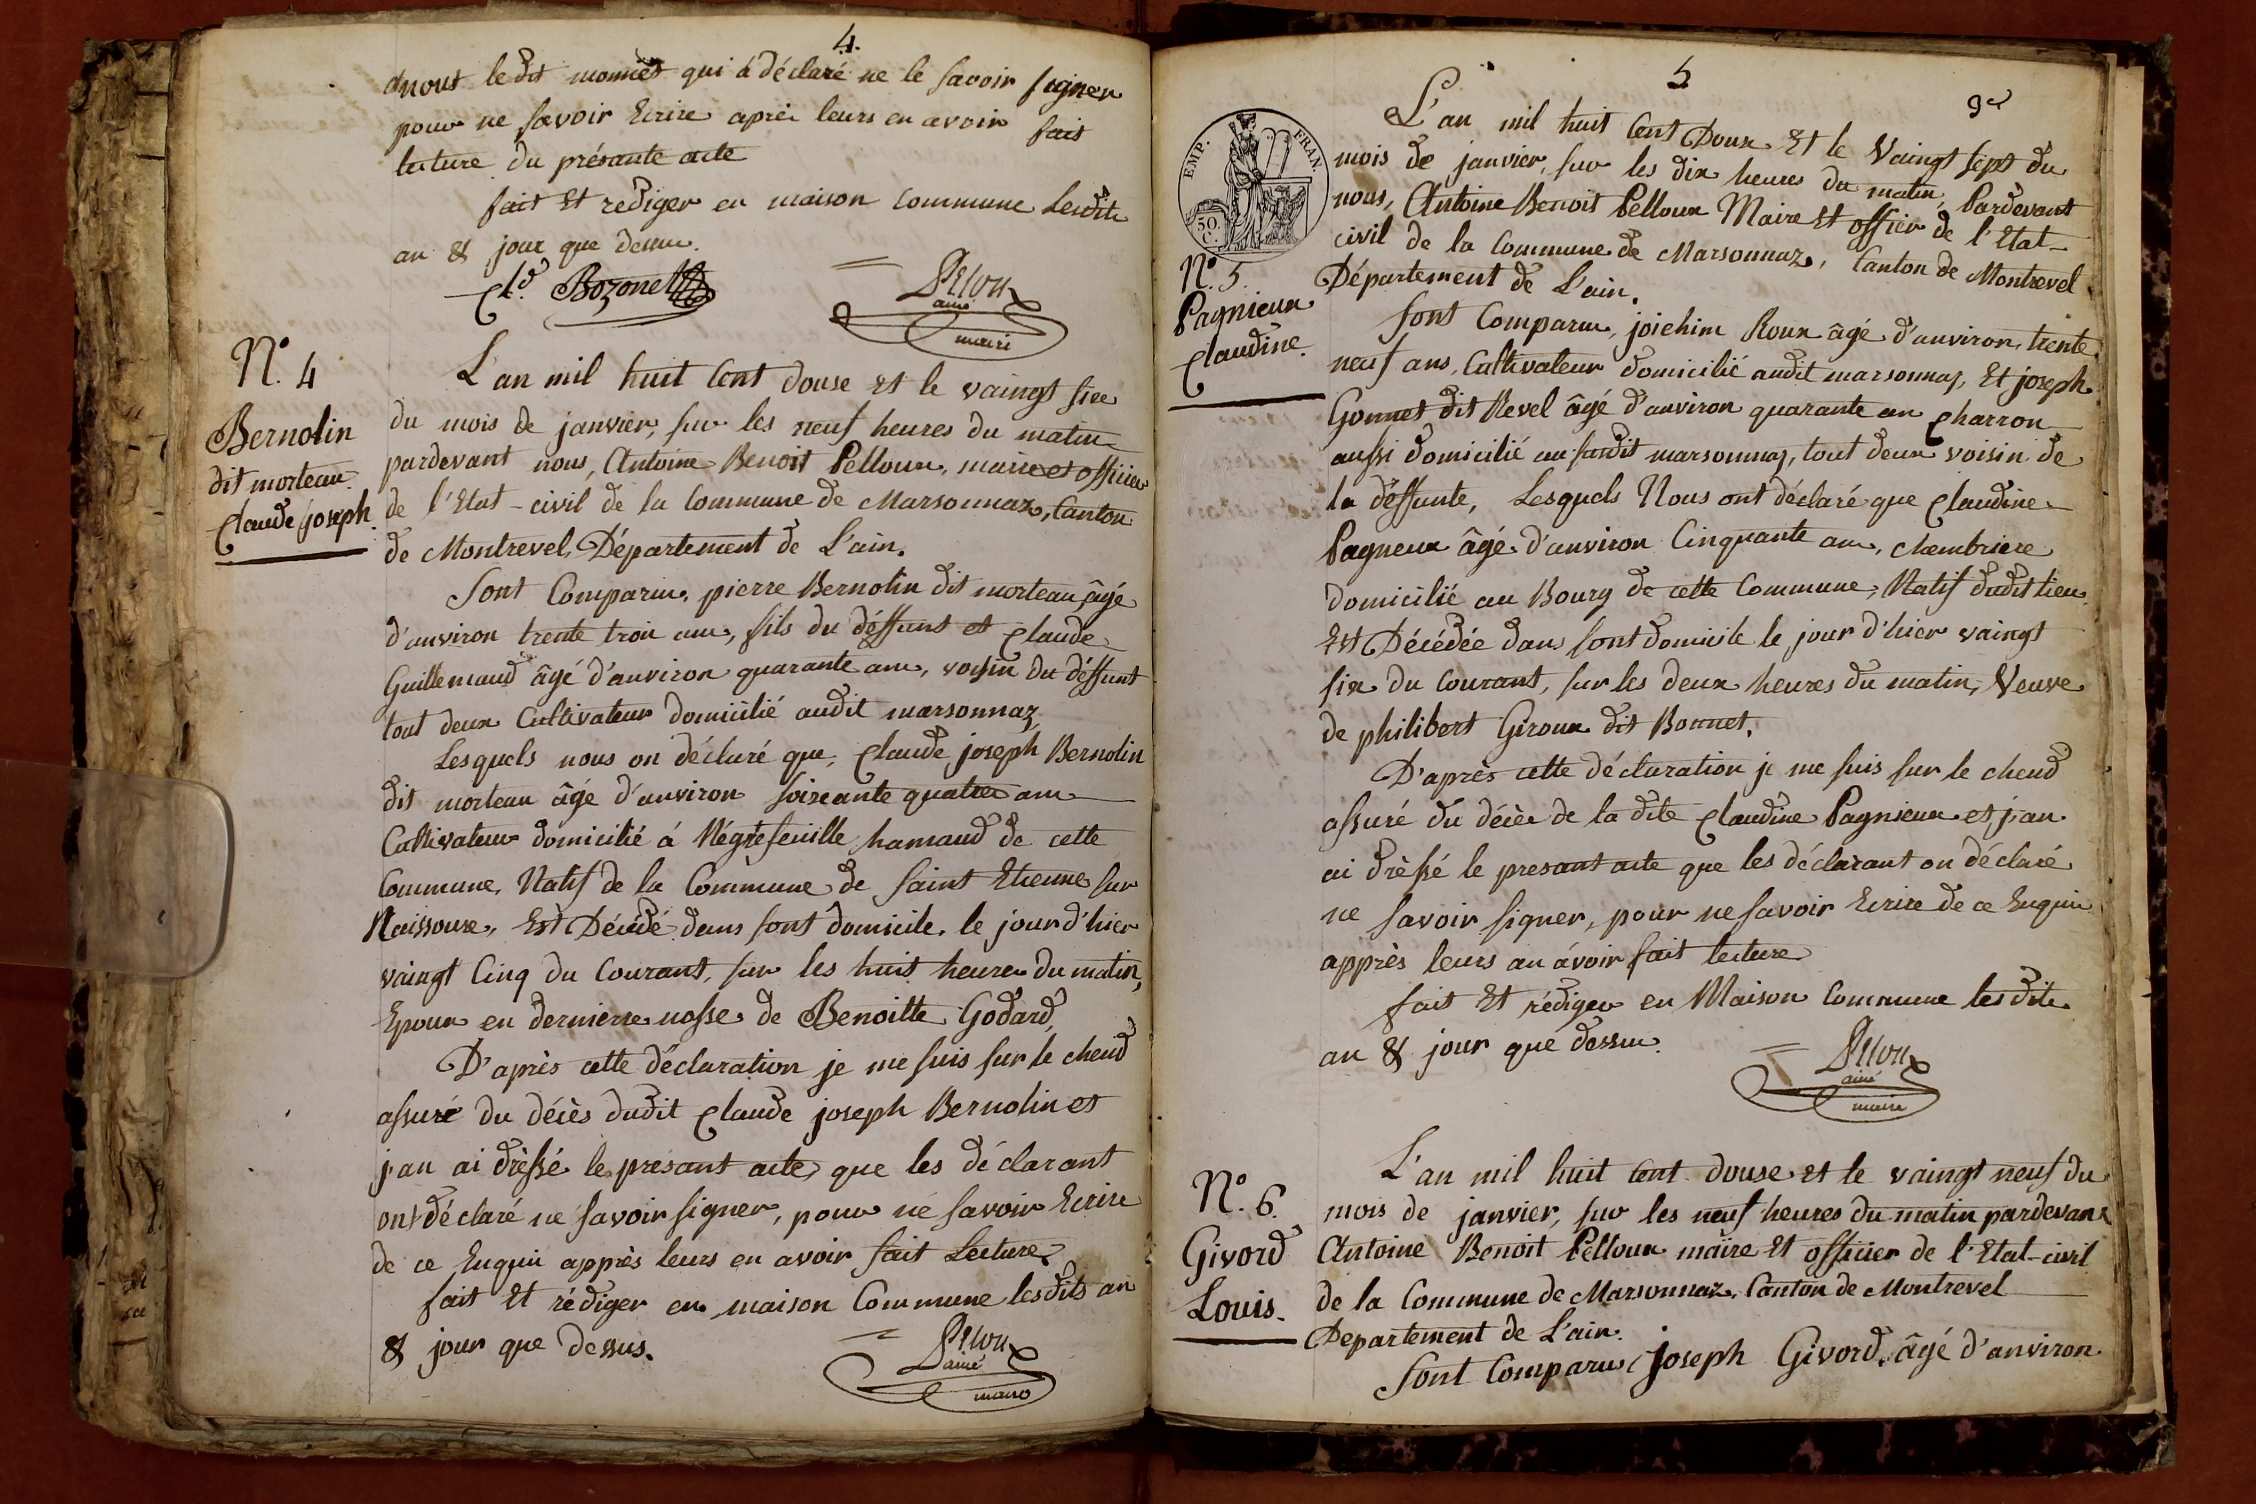 4.
nous ledit monnet qui á déclaré ne le savoir signer
pour ne savoir Ecrire aprèi leurs en avoir fait
lecture du présante acte
fait Et rediger en maison Commune Lesdits
an & jour que dessu.
Cl.d Bozonet
Pelloux
ainé
maire
N.o 4
Bernolin
dit morteau
Claude joseph.
L'an mil huit Cent douse et le vaingt six
du mois de janvier, sur les neuf heures du matin
pardevant nous, Antoine Benoit Pelloux, maire et officier
de l'Etat-civil de la Commune de Marsonnaz, Canton
de Montrevel, Département de L'ain.
Sont Comparu, pierre Bernolin dit morteau âgé
d'anviron trente troi an, fils du déffunt et Claude
Guillemaud âgé d'anviron quarante an, voisin du déffunt
tout deux Cultivateur domicilié audit marsonnaz
Lesquels nous on déclaré que, Claude joseph Bernolin
dit morteau âgé d'anviron soixante quatre an
Cultivateur domicilié á Négrefeuille hamaud de cette
Commune, Natif de la Commune de Saint Etienne sur
Raissouse, Est Décédé dans sont domicile, le jour d'hier
vaingt Cinq du Courant, sur les huit heure du matin,
Epoux en dernière nosse de Benoitte Godard,
D'après cette déclaration je me suis sur le cheud
assuré du décès dudit Claude joseph Bernolin et
j'an ai drèssé le presant acte, que les déclarant
ont déclaré ne savoir signer, pour né savoir Ecrire
de ce Enquis apprès leurs en avoir fait Lecture
fait Et rédiger en maison Commune lesdits an
& jour que dessus.
Pelloux
ainé
maire
5
3.e
EMP. FRAN.
50.
C.
N.o 5.
Pagnieux
Claudine.
L'an mil huit Cent Doux Et le Vaingt sept du
mois de janvier, sur les dix heures du matin, Pardevant
nous, Antoine Benoit Pelloux Maire Et offier de l'Etat-
civil de la Commune de Marsonnaz, Canton de Montrevel
Département de L'ain.
Sont Comparu, joichim Roux âgé d'anviron, trente
neuf ans, Cultivateur domicilié audit marsonnaz, Et joseph
Gonnet dit Revel âgé d'anviron quarante an Charron
aussi domicilié au sudit marsonnaz, tout deux voisin de
la déffunte, Lesquels Nous ont déclaré que Claudine
Pagneux âgé d'anviron Cinquante an, chambriere
domicilié au Bourg de cette Commune, Natif dudit lieu
Est Décédée dans sont domicile le jour d'hier vaingt
six du Courant, sur les deux heures du matin, Veuve
de philibert Giroux dit Bonnet.
D'après cette déclaration je me suis sur le cheud
assuré du décès de la dite Claudine Pagnieux et j'an
ai drèssé le presant acte que les déclarant on déclaré
ne savoir signer, pour ne savoir Ecrire de ce Enquis
apprès leurs an ávoir fait lecture
fait Et rédiger en Maison Commune lesdits
an & jour que dessu.
Pelloux
ainé
maire
N.o 6.
Givord
Louis.
L'an mil huit Cent douse et le vaingt neuf du
mois de janvier, sur les neuf heures du matin pardevant
Antoine Benoit Pelloux maire Et officier de l'Etat-civil
de la Commune de Marsonnaz, Canton de Montrevel
Departement de L'ain.
Sont Comparu, Joseph Givord, âgé d'anviron